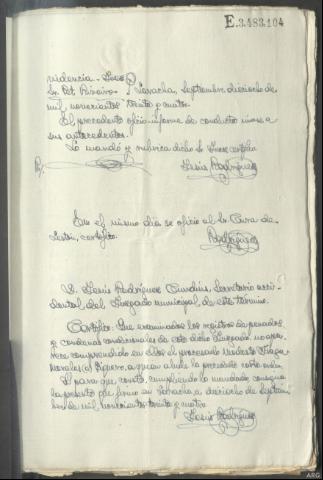 E.3.483.104
videncia.- Juez
Sr. Pet Riveiro.- Saracha, Septiembre dieciocho de
mil novecientos treinta y cuatro.
El precedente oficio informe de conducta únase a
sus antecedentes.
Lo mandó y rubrica dicho Sr. Juez certifico
Jesús Rodríguez
En el mismo día se ofició al Sr. Cura de
certifico.
Rodríguez
D. Jesús Rodríguez Secretario acci-
dental del Juzgado municipal de este término.
Certifico: Que examinados los registros de penados
y condenas condicionales de este dicho Juzgado, no apa-
rece comprendido en ellos el procesado Modesto
a quien alude la precedente carta orden.
Y para que conste, cumpliendo lo mandado
la presente que firmo en Saracha a dieciocho de Septiem-
bre de mil novecientos treinta y cuatro
Jesús Rodríguez
ARG